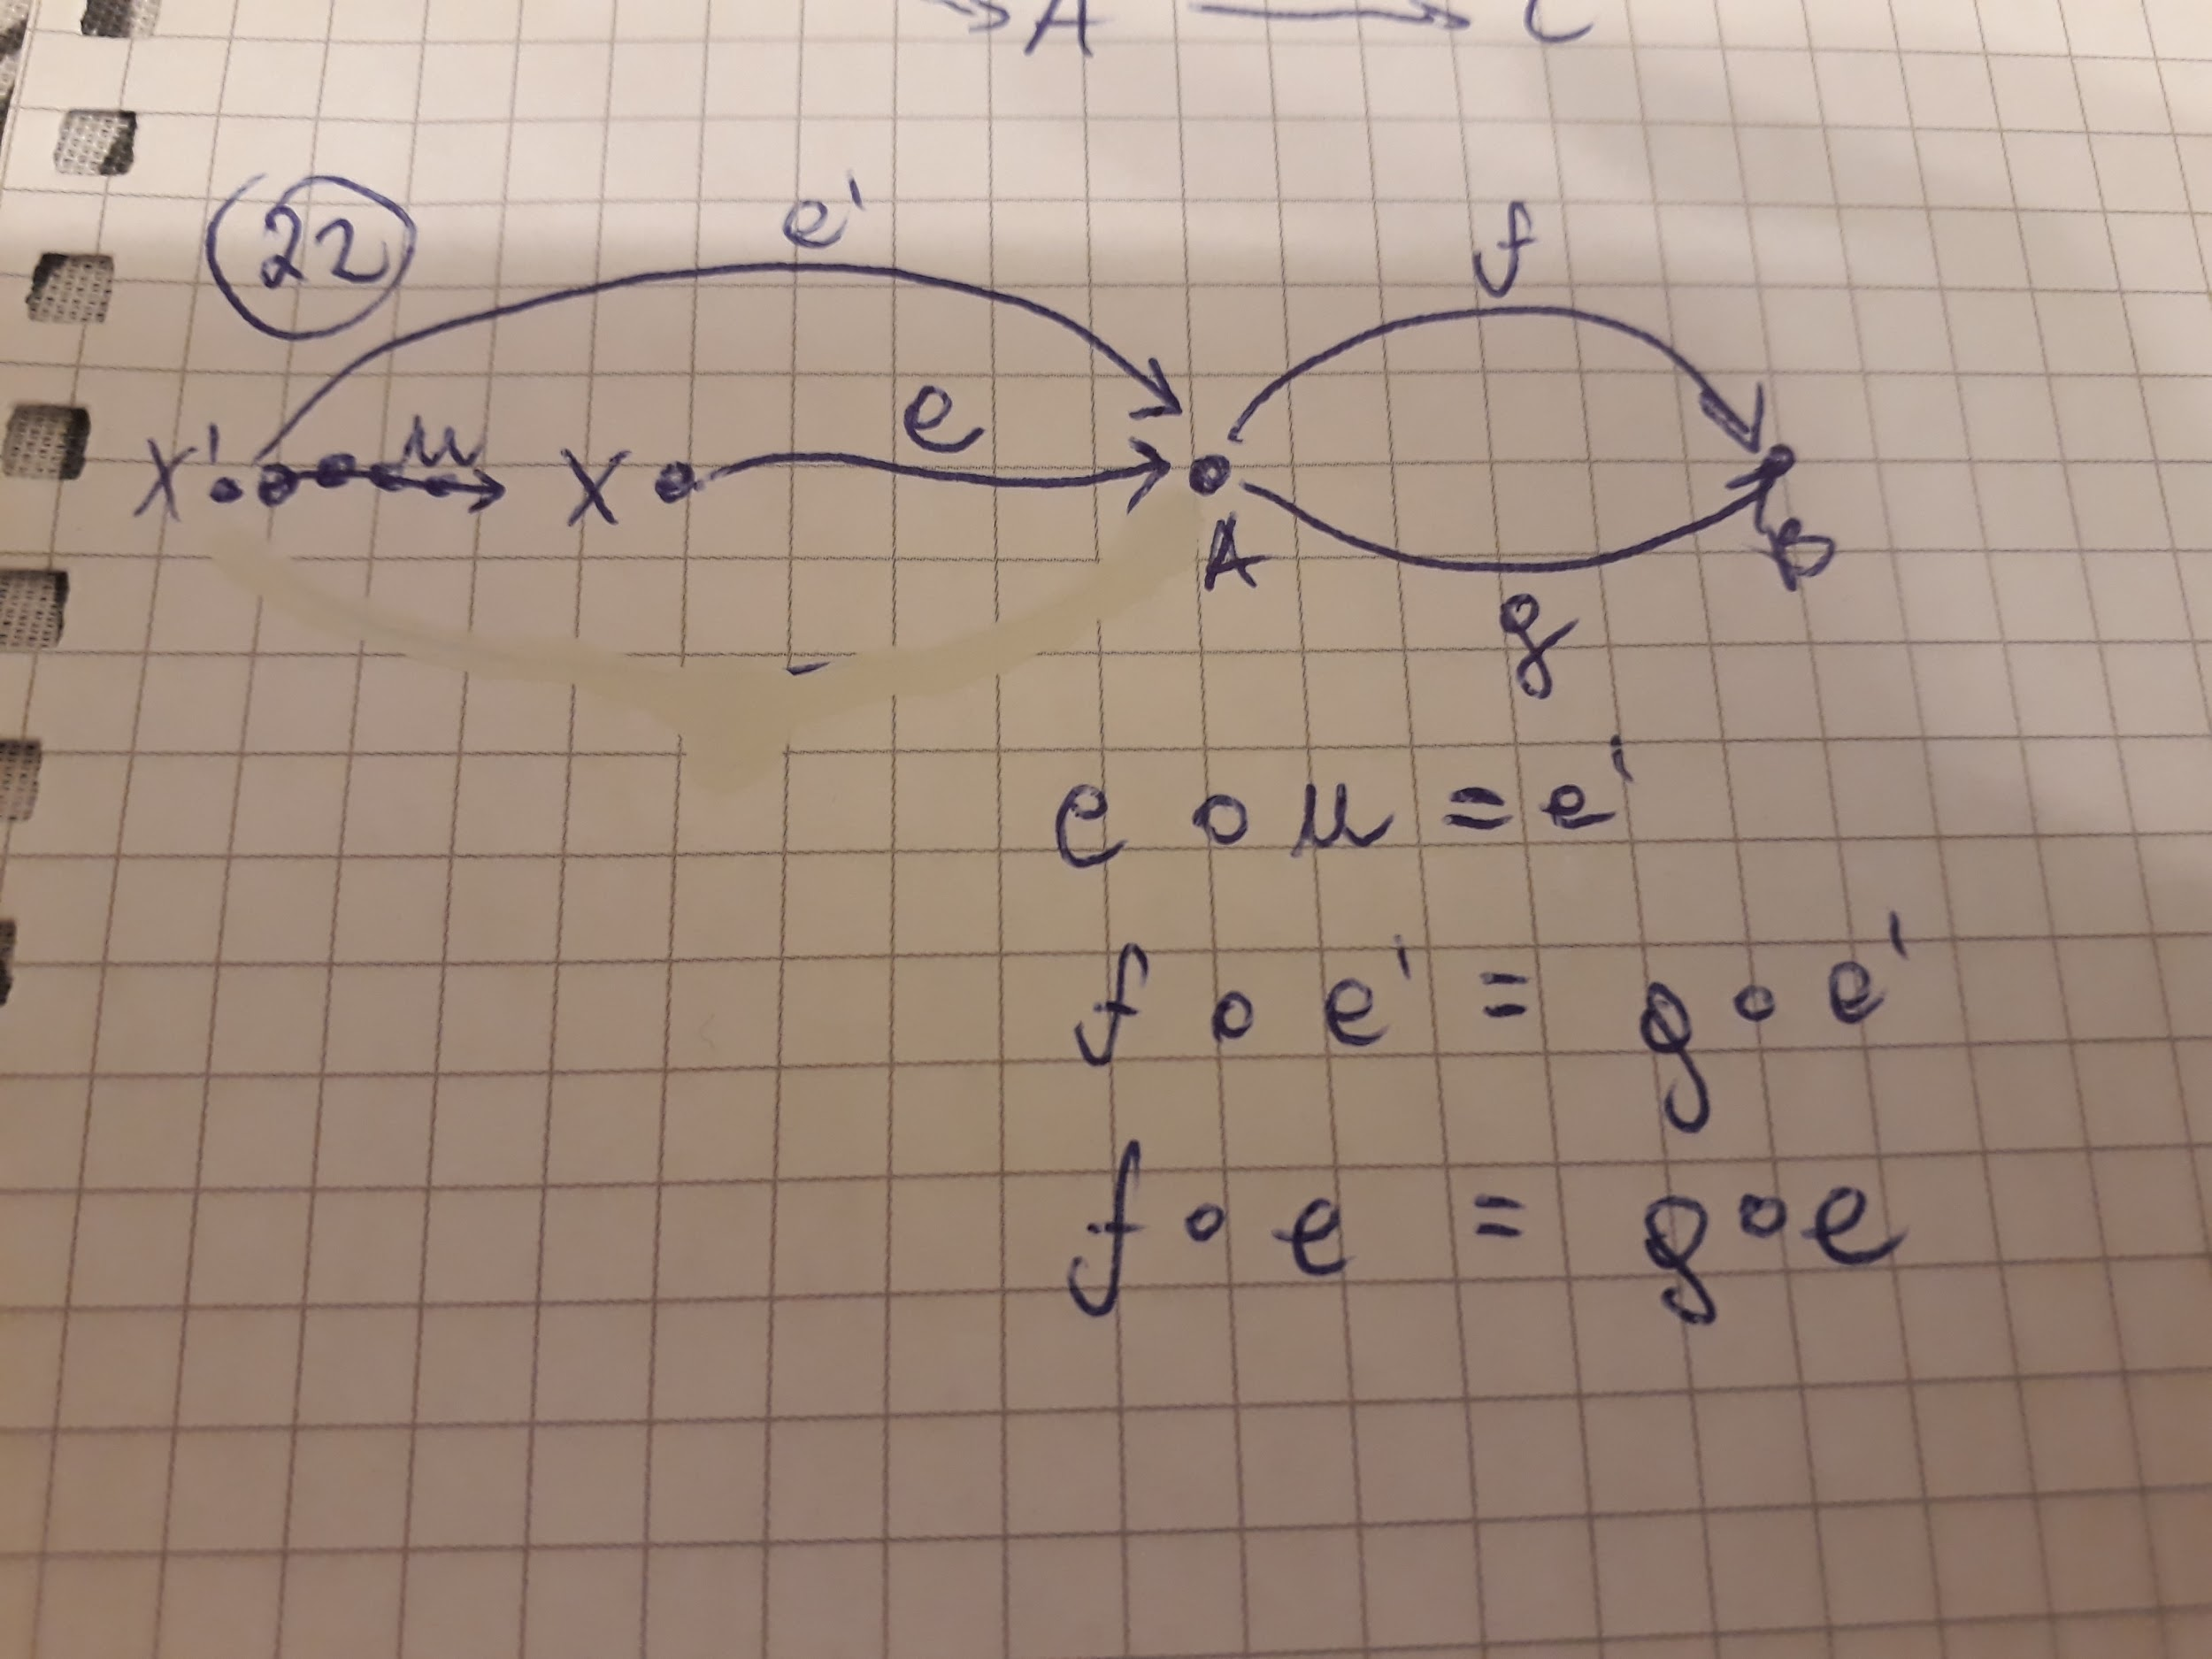 A C
22
e'
f
e
X' u X
A
B
g
e ∘ u = e'
f ∘ e' = g ∘ e'
f ∘ e = g ∘ e